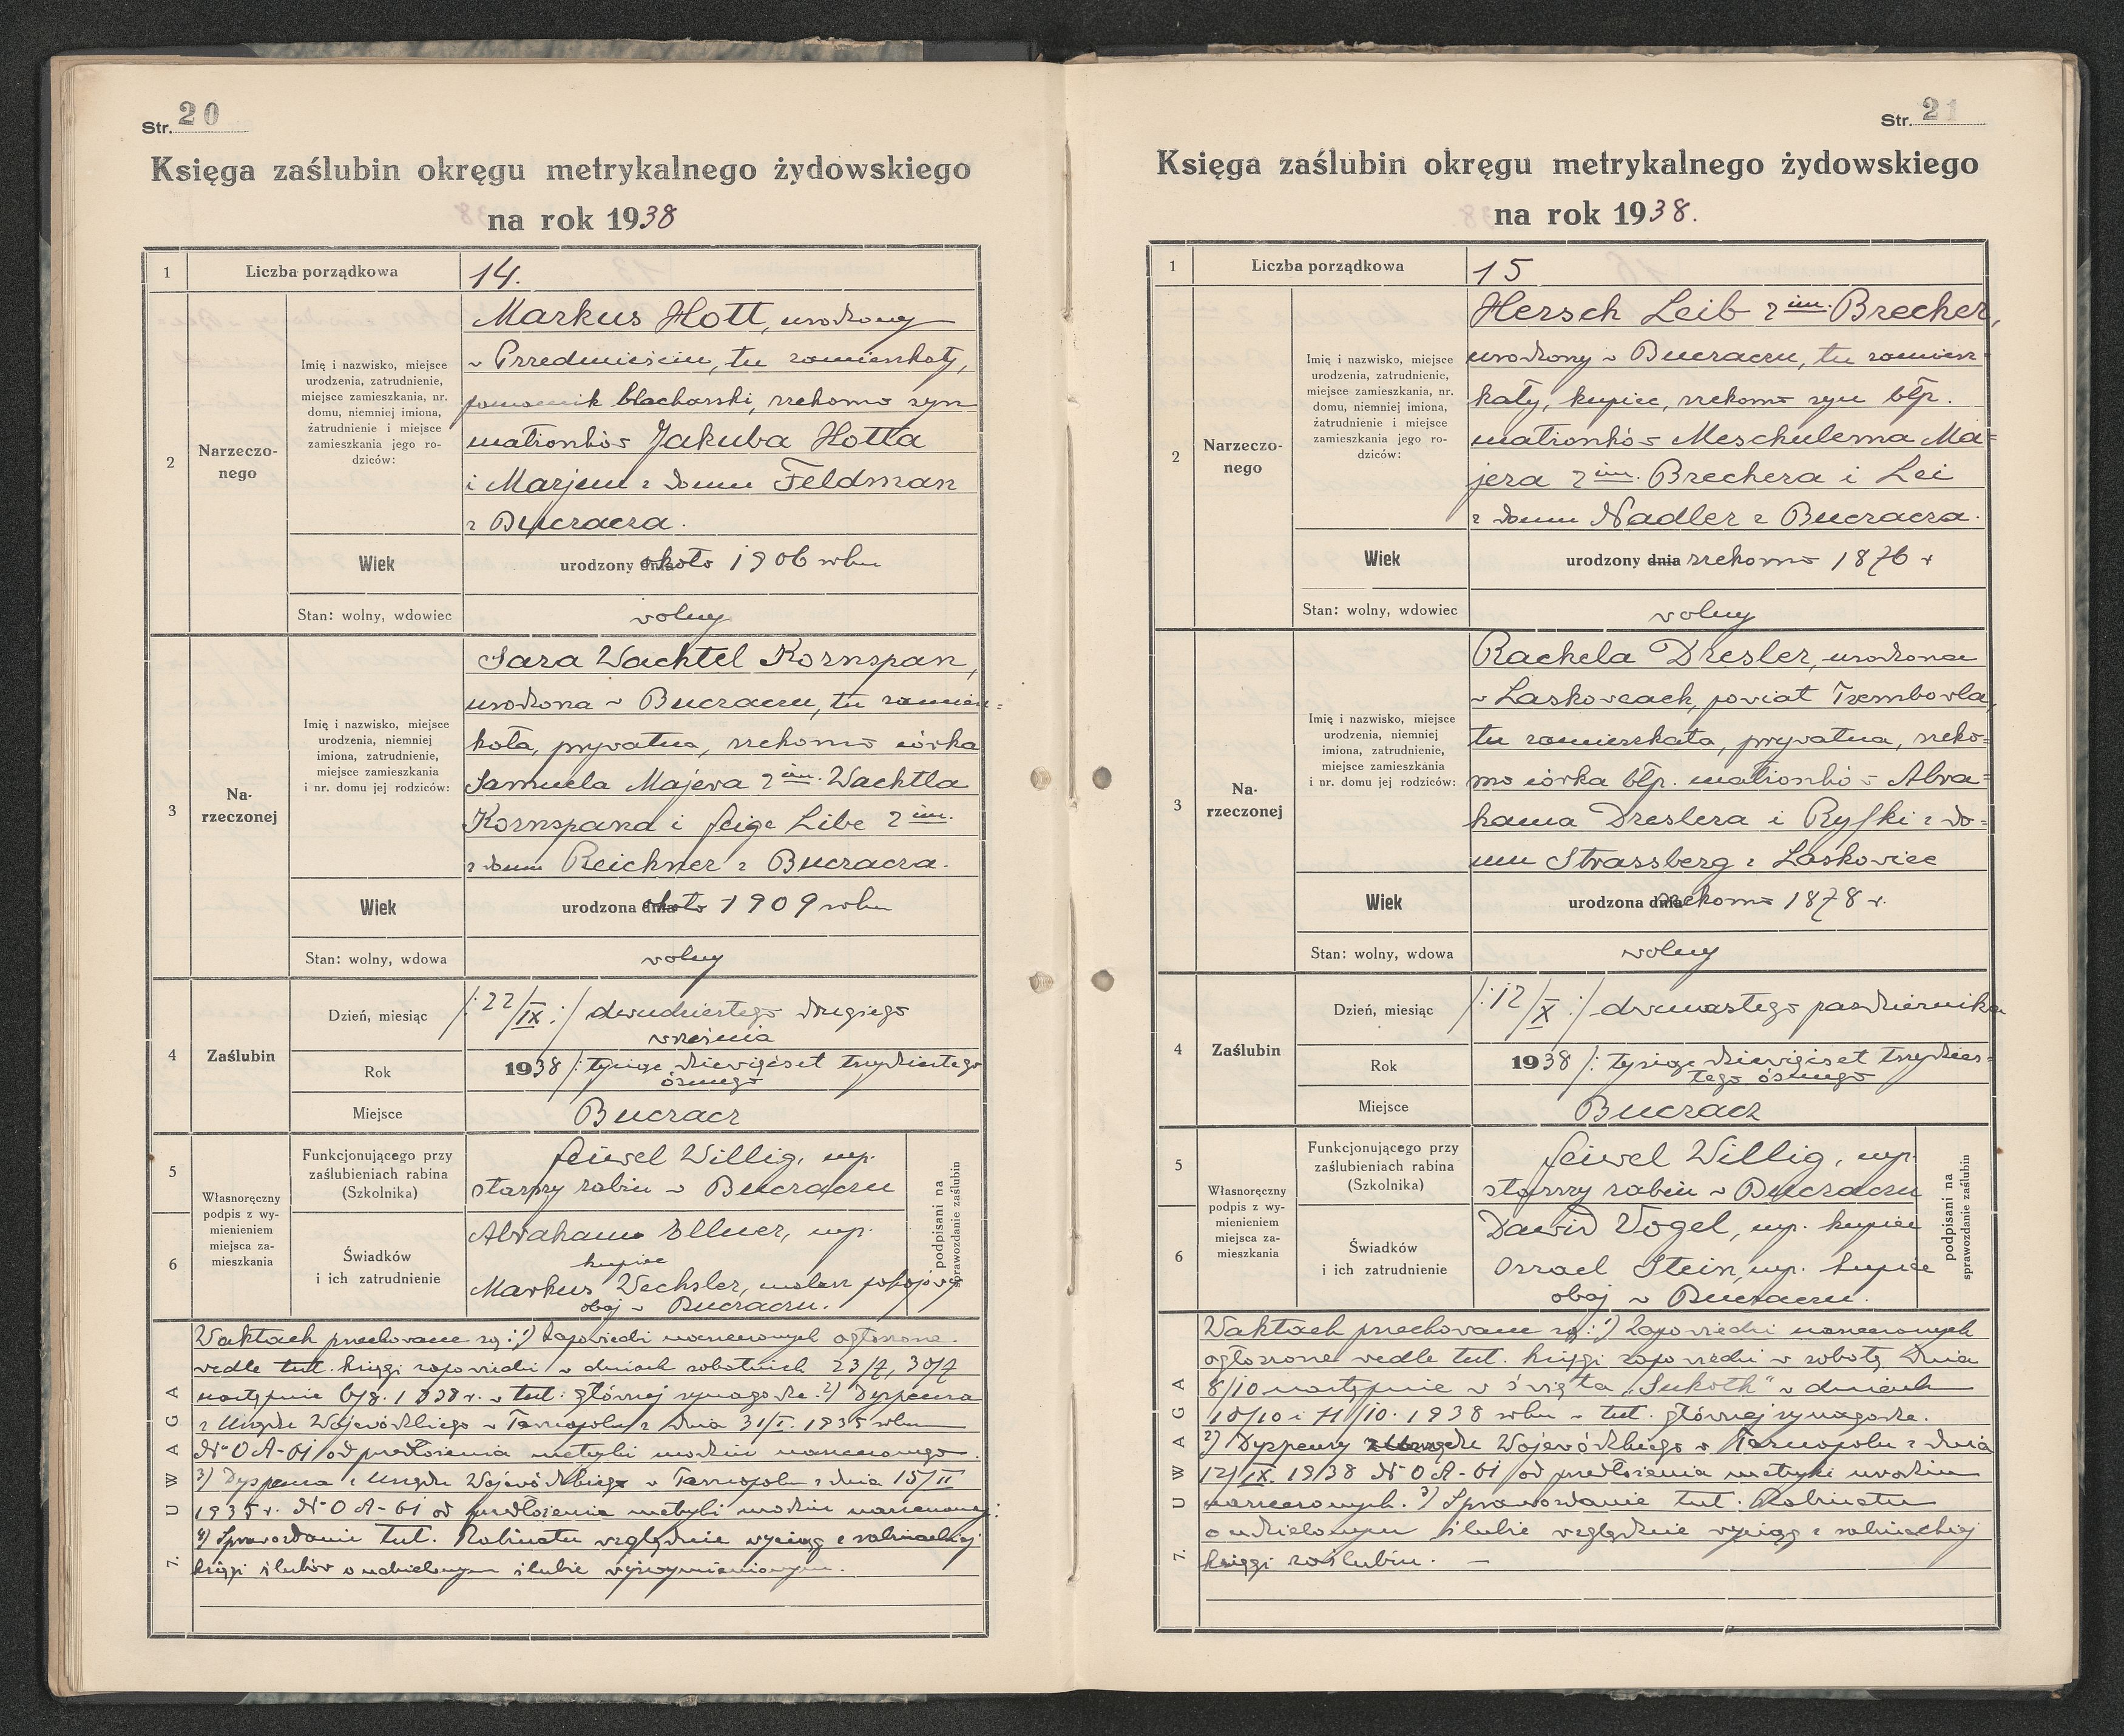 Str. 20
Księga zaślubin okręgu metrykalnego żydowskiego
na rok 1938
1 Liczba porządkowa 14.
2 Narzeczo-
nego
Imię i nazwisko, miejsce
urodzenia, zatrudnienie,
miejsce zamieszkania, nr.
domu, niemniej imiona,
żatrudnienie i miejsce
zamieszkania jego ro-
dziców:
Markus Hott, urodzony
w Przedmieściu, tu zamieszkały,
pomocnik blacharski, rzekomo syn
małżonków Jakuba Hotta
i Marjem z domu Feldman
z Buczacza.
Wiek urodzony dnia około 1906 roku
Stan: wolny, wdowiec wolny
3 Na-
rzeczonej
Imię i nazwisko, miejsce
urodzenia, niemniej
imiona, zatrudnienie,
miejsce zamieszkania
i nr. domu jej rodziców:
Sara Wachtel Kornspan,
urodzona w Buczaczu, tu zamiesz=
kała, prywatna, rzekomo córka
Samuela Majera 2 im. Wachtla
Kornspana i Feige Libe 2 im.
z domu Reichner z Buczacza.
Wiek urodzona dnia około 1909 roku
Stan: wolny, wdowa wolny
4 Zaślubin
Dzień, miesiąc /:22/IX:/ dwudziestego drugiego
września
Rok 1938 /: tysiąc dziewięćset trzydziestego
ósmego
Miejsce Buczacz
Własnoręczny
podpis z wy-
mienieniem
miejsca za-
mieszkania
5 Funkcjonującego przy
zaślubieniach rabina
(Szkolnika)
Feiwel Willig, mp.
starszy rabin w Buczaczu
6 Świadków
i ich zatrudnienie
Abraham Ellner, mp.
kupiec
Markus Wechsler, malarz pokojowy
obaj w Buczaczu.
podpisani na
sprawozdanie zaślubin
7. UWAGA
W aktach przechowane są: 1) Zapowiedzi narzeczonych ogłoszone
wedle tut. księgi zapowiedzi w dniach sobotnich 23/7, 30/7
następnie 6/8. 1938 r. w tut. głównej synagodze. 2) Dyspensa
z Urzędu Wojewódzkiego w Tarnopolu z dnia 31/I. 1935 roku
No OA-61 od przedłożenia metryki urodzin narzeczonego.
3) Dyspensa z Urzędu Wojewódzkiego w Tarnopolu z dnia 15/II
1935 r. No OA-61 od przedłożenia metryki urodzin narzeczonej:
4) Sprawozdanie tut. Rabinatu względnie wyciąg z rabinackiej
księgi ślubów o udzielonym ślubie wyżwymienionym.
Str. 21
Księga zaślubin okręgu metrykalnego żydowskiego
na rok 1938.
1 Liczba porządkowa 15
2 Narzeczo-
nego
Imię i nazwisko, miejsce
urodzenia, zatrudnienie,
miejsce zamieszkania, nr.
domu, niemniej imiona,
żatrudnienie i miejsce
zamieszkania jego ro-
dziców:
Hersch Leib 2 im. Brecher,
urodzony w Buczaczu, tu zamiesz=
kały, kupiec, rzekomo syn błp.
małżonków Meschulema Ma=
jera 2 im. Brechera i Lei
z domu Nadler z Buczacza.
Wiek urodzony dnia rzekomo 1876 r
Stan: wolny, wdowiec wolny
3 Na-
rzeczonej
Imię i nazwisko, miejsce
urodzenia, niemniej
imiona, zatrudnienie,
miejsce zamieszkania
i nr. domu jej rodziców:
Rachela Dresler, urodzona
w Laskowcach, powiat Trembowla,
tu zamieszkała, prywatna, rzeko=
mo córka błp. małżonków Abra=
hama Dreslera i Ryfki z do=
mu Strassberg z Laskowiec
Wiek urodzona dnia rzekomo 1878 r.
Stan: wolny, wdowa wolny
4 Zaślubin
Dzień, miesiąc /:12/X:/ dwunastego października
Rok 1938 /: tysiąc dziewięćset trzydzies=
tego ósmego
Miejsce Buczacz
Własnoręczny
podpis z wy-
mienieniem
miejsca za-
mieszkania
5 Funkcjonującego przy
zaślubieniach rabina
(Szkolnika)
Feiwel Willig, mp.
starszy rabin w Buczaczu
6 Świadków
i ich zatrudnienie
Dawid Vogel, mp. kupiec
Osrael Stein, mp. kupiec
obaj w Buczaczu.
podpisani na
sprawozdanie zaślubin
7. UWAGA
W aktach przechowane są: 1) Zapowiedzi narzeczonych
ogłoszone wedle tut. księgi zapowiedzi w sobotę dnia
8/10 następnie w święta „Sukoth" w dniach
10/10 i 11/10. 1938 roku w tut. głównej synagodze.
2) Dyspensy z Urzędu Wojewódzkiego w Tarnopolu z dnia
12/IX. 1938 No OA-61 od przedłożenia metryki urodzin
narzeczonych. 3) Sprawozdanie tut. Rabinatu
o udzielonym ślubie względnie wyciąg z rabinackiej
księgi zaślubin. —